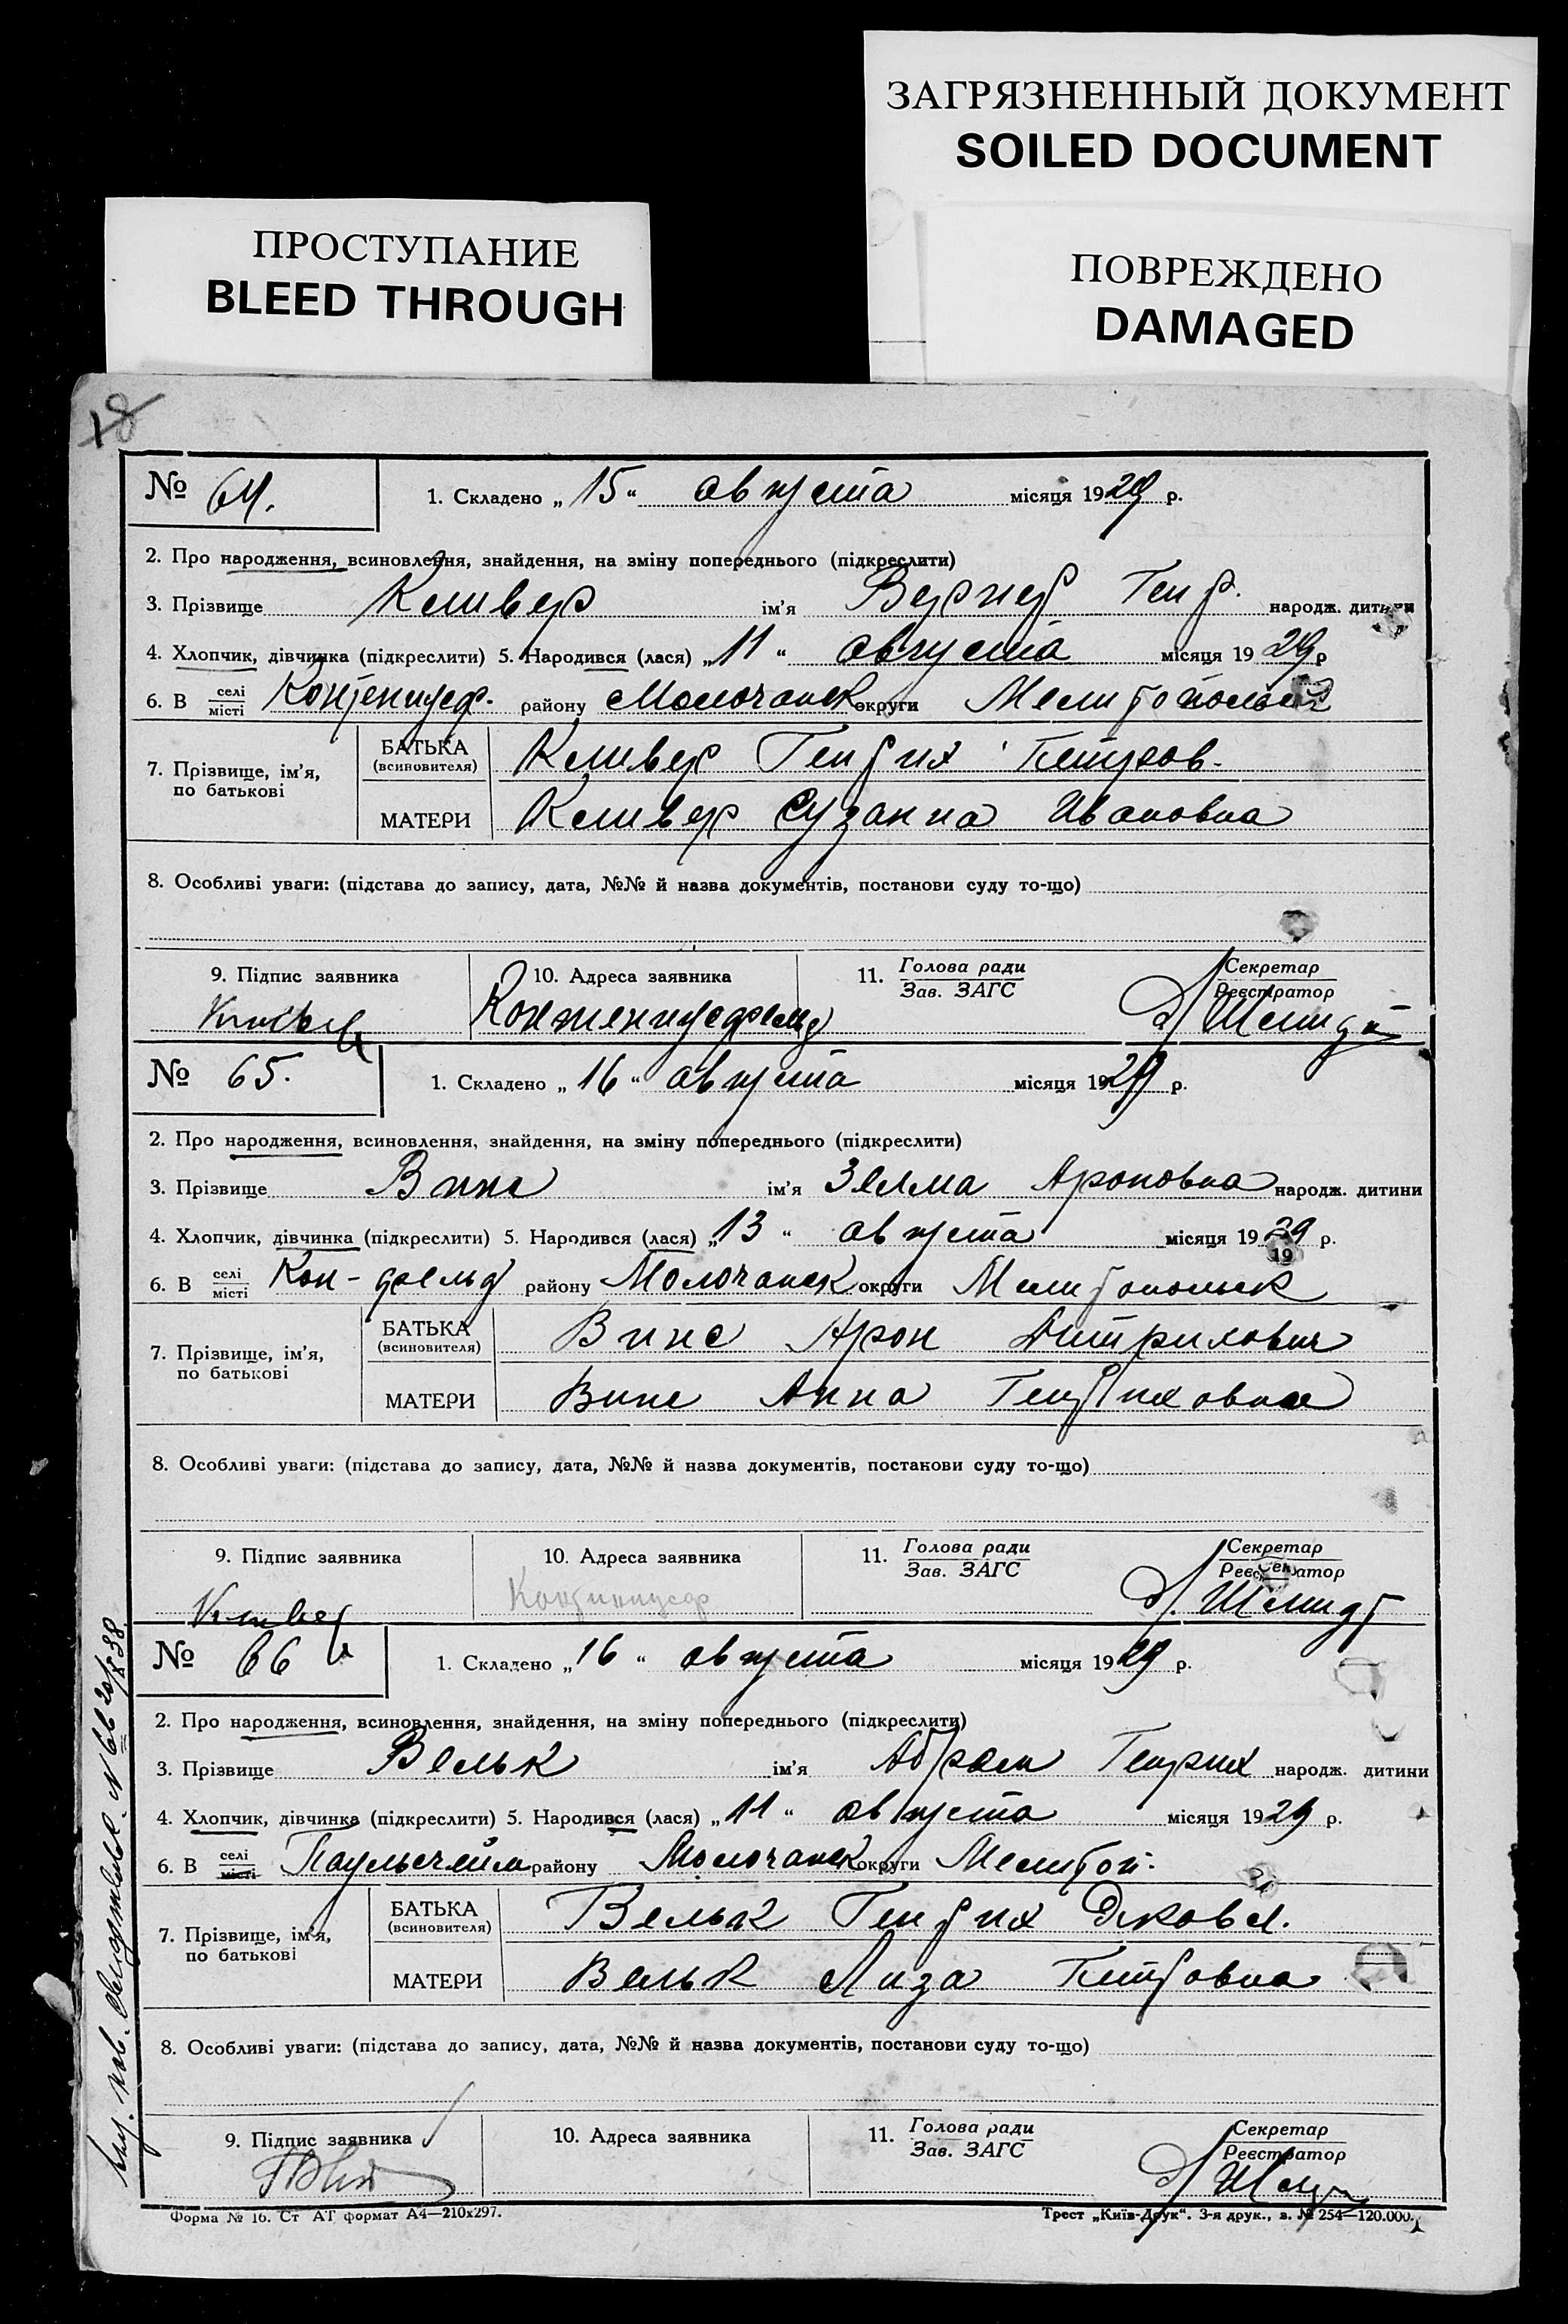 ЗАГРЯЗНЕННЫЙ ДОКУМЕНТ
SOILED DOCUMENT
ПРОСТУПАНИЕ
BLEED THROUGH
ПОВРЕЖДЕНО
DAMAGED
18
№ 64. 1. Складено „ 15 “ августа місяця 1929 р.
2. Про народження, всиновлення, знайдення, на зміну попереднього (підкреслити)
3. Прізвище Кливер ім'я Вернер Генр. народж. дитини
4. Хлопчик, дівчинка (підкреслити) 5. Народився (лася) „ 11 “ августа місяця 1929 р
6. В селі/місті Контениусф. району Молочанск округи Мелитопольск
7. Прізвище, ім'я, по батькові
БАТЬКА (всиновителя) Кливер Генрих Петров.
МАТЕРИ Кливер Сузанна Ивановна
8. Особливі уваги: (підстава до запису, дата, №№ й назва документів, постанови суду то-що)
9. Підпис заявника 10. Адреса заявника 11. Голова ради / Зав. ЗАГС Секретар / Реєстратор
Контениусфельд Д Шмидт
№ 65. 1. Складено „ 16 “ августа місяця 1929 р.
2. Про народження, всиновлення, знайдення, на зміну попереднього (підкреслити)
3. Прізвище Винс ім'я Зелма Ароновна народж. дитини
4. Хлопчик, дівчинка (підкреслити) 5. Народився (лася) „ 13 “ августа місяця 1929 р.
19
6. В селі/місті Кон-фельд району Молочанск округи Мелитопольск
7. Прізвище, ім'я, по батькові
БАТЬКА (всиновителя) Винс Арон Дитрихович
МАТЕРИ Винс Анна Генриховна
8. Особливі уваги: (підстава до запису, дата, №№ й назва документів, постанови суду то-що)
9. Підпис заявника 10. Адреса заявника 11. Голова ради / Зав. ЗАГС Секретар / Реєстратор
Контениусф Д. Шмидт
№ 66 1. Складено „ 16 “ августа місяця 1929 р.
2. Про народження, всиновлення, знайдення, на зміну попереднього (підкреслити)
3. Прізвище Вельк ім'я Абрам Генрих народж. дитини
4. Хлопчик, дівчинка (підкреслити) 5. Народився (лася) „ 11 “ августа місяця 1929 р.
6. В селі/місті Паульсгейм району Молочанск округи Мелитоп.
7. Прізвище, ім'я, по батькові
БАТЬКА (всиновителя) Вельк Генрих Яковл.
МАТЕРИ Вельк Лиза Петровна
8. Особливі уваги: (підстава до запису, дата, №№ й назва документів, постанови суду то-що)
9. Підпис заявника 10. Адреса заявника 11. Голова ради / Зав. ЗАГС Секретар / Реєстратор
Д Шмидт
Форма № 16. Ст АТ формат А4—210х297. Трест „Київ-Друк“. 3-я друк., з. № 254—120.000.